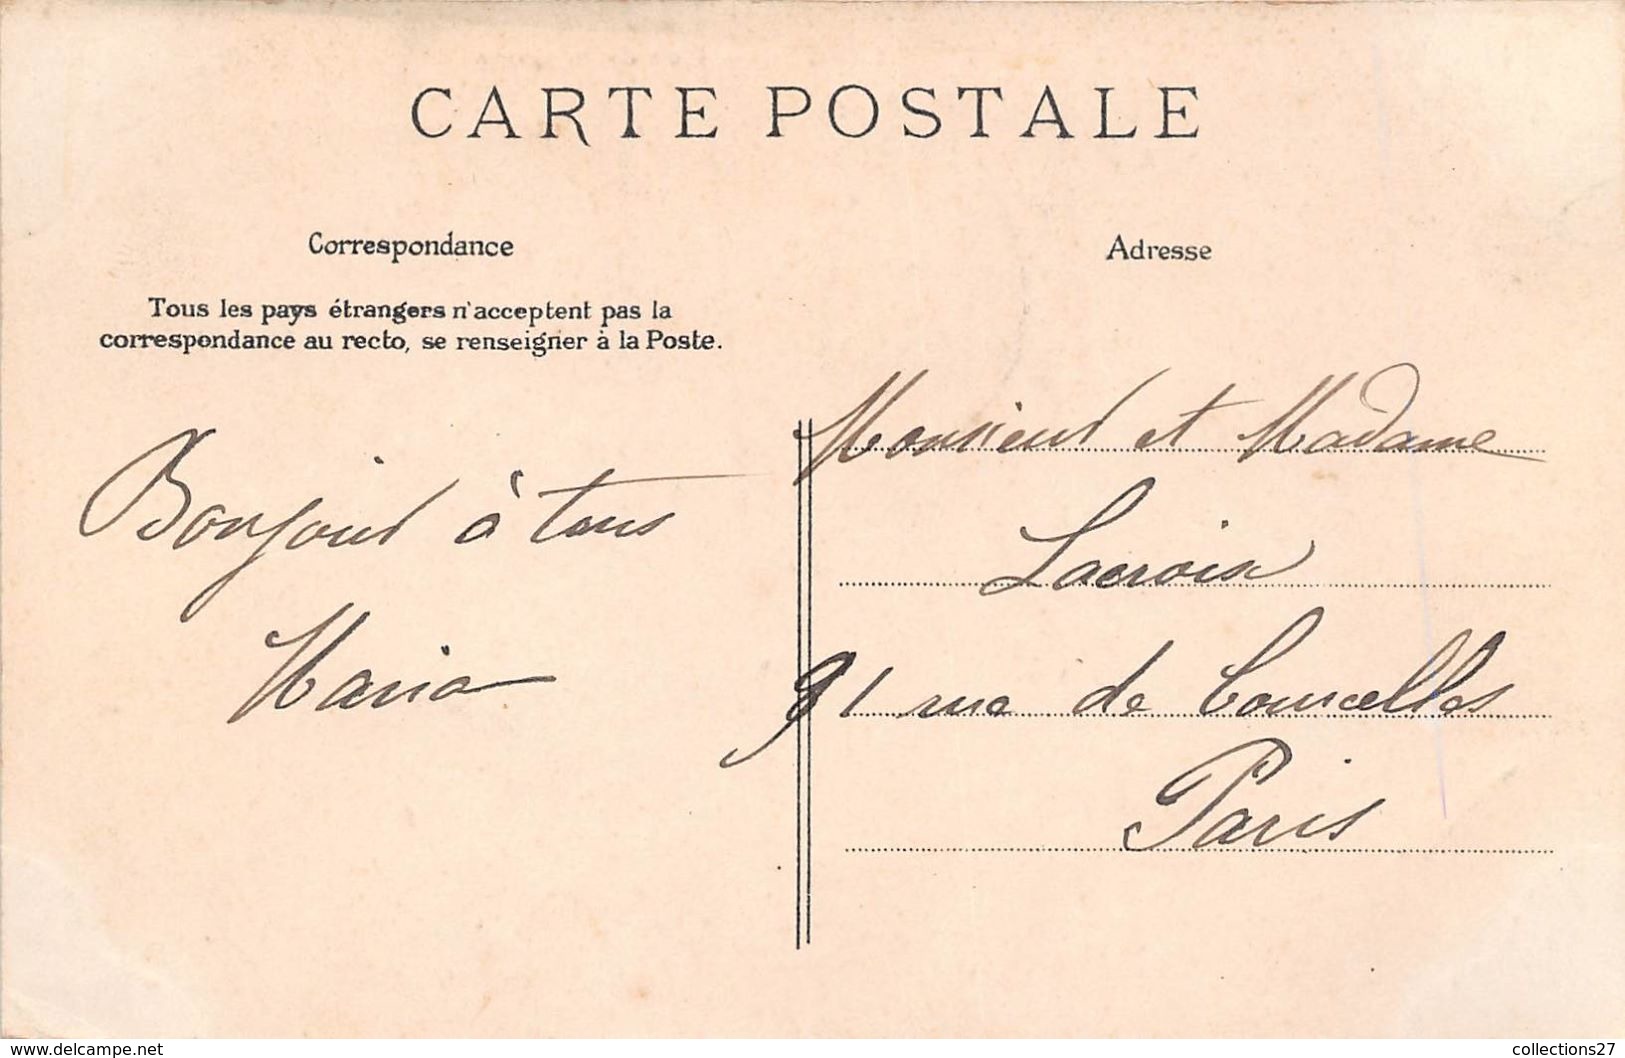 CARTE POSTALE
Correspondance
Tous les pays étrangers n'acceptent pas la
correspondance au recto, se renseigner à la Poste.
Bonjour à tous
Maria
Adresse
Monsieur et Madame
Lacroix
91 rue de Courcelles
Paris
www.delcampe.net
collections27